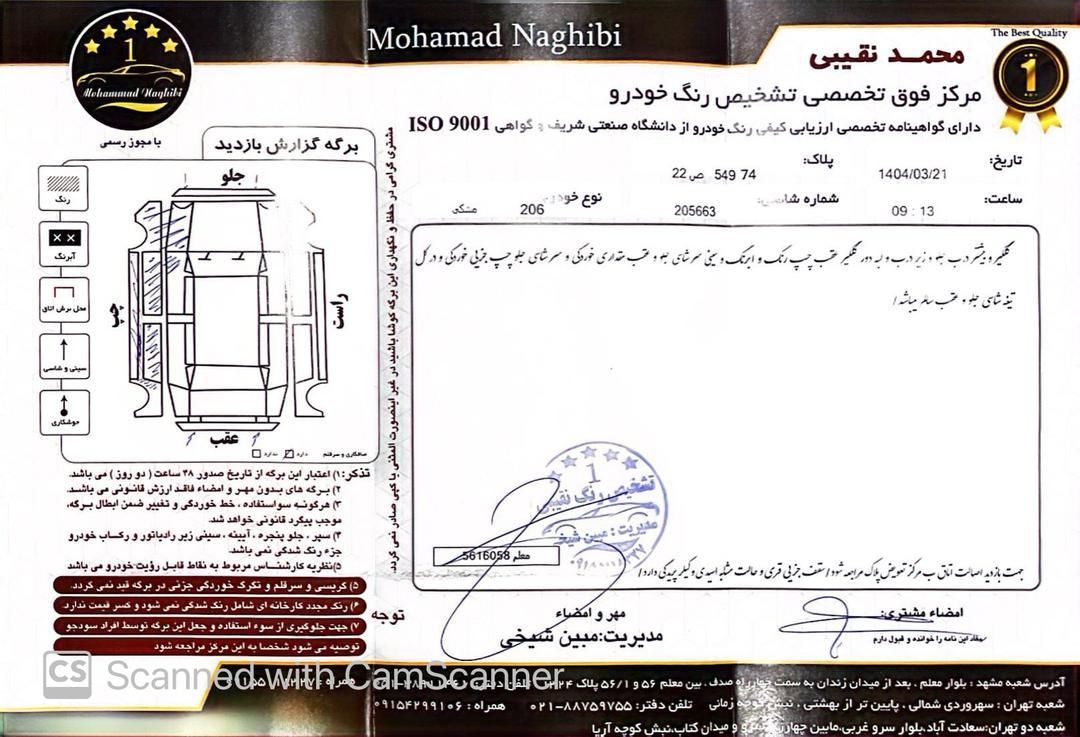 Mohamad Naghibi
The Best Quality
1
1
Mohammad Naghibi
با مجوز رسمی
محمد نقیبی
مرکز فوق تخصصی تشخیص رنگ خودرو
دارای گواهینامه تخصصی ارزیابی کیفی رنگ خودرو از دانشگاه صنعتی شریف و گواهی ISO 9001
تاریخ: 1404/03/21
پلاک: 74 549 ص 22
ساعت: 09 : 13
شماره شاسی: 205663
نوع خودرو: 206 مشکی
برگه گزارش بازدید
جلو
چپ
راست
عقب
رنگ
آبرنگ
محل برش اتاق
سینی و شاسی
جوشکاری
صافکاری و سرقلم دارد ندارد
مشتری گرامی در حفظ و نگهداری این برگه کوشا باشید در غیر اینصورت المثنی یا کپی صادر نمی گردد.
گلگیر و بیشتر درب جلو و زیر درب و لبه دور گلگیر عقب چپ رنگ و ابرنگ و سینی سر شاسی جلو و عقب مقداری خوردگی و سر شاسی جلو چپ جزیی خوردگی و در کل
تیغه شاسی جلو و عقب سالم میباشد/
جهت بازدید اصالت اتاق ب مرکز تعویض پلاک مراجعه شود/سقف جزیی قری و حالت مشابه اسیدی و کیلر پریدگی دارد/
تذکر: ۱) اعتبار این برگه از تاریخ صدور ۴۸ ساعت (دو روز) می باشد.
۲) برگه های بدون مهر و امضاء فاقد ارزش قانونی می باشد.
۳) هرگونه سواستفاده، خط خوردگی و تغییر ضمن ابطال برگه،
موجب پیگرد قانونی خواهد شد.
۴) سپر، جلو پنجره، آیینه، سینی زیر رادیاتور و رکاب خودرو
جزء رنگ شدگی نمی باشد.
۵) نظریه کارشناس مربوط به نقاط قابل رؤیت خودرو می باشد
۵) گریسی و سرقلم و تگرگ خوردگی جزئی در برگه قید نمی گردد.
۶) رنگ مجدد کارخانه ای شامل رنگ شدگی نمی شود و کسر قیمت ندارد.
۷) جهت جلوگیری از سوء استفاده و جعل این برگه توسط افراد سودجو
توصیه می شود شخصا به این مرکز مراجعه شود
توجه
1
تشخیص رنگ نقیبی
مدیریت: مبین شیخی
معلم 5616058
مهر و امضاء
مدیریت: مبین شیخی
امضاء مشتری:
مفاد این نامه را خوانده و قبول دارم
CS Scanned with CamScanner
آدرس شعبه مشهد: بلوار معلم، بعد از میدان زندان به سمت چهارراه صدف، بین معلم ۵۶ و ۵۶/۱ پلاک
شعبه تهران: سهروردی شمالی، پایین تر از بهشتی، نبش کوچه زمانی تلفن دفتر: ۸۸۷۵۹۷۵۵-۰۲۱ همراه: ۰۹۱۵۴۲۹۹۱۰۶
شعبه دو تهران: سعادت آباد، بلوار سرو غربی، مابین چهارراه سرو و میدان کتاب، نبش کوچه آریا